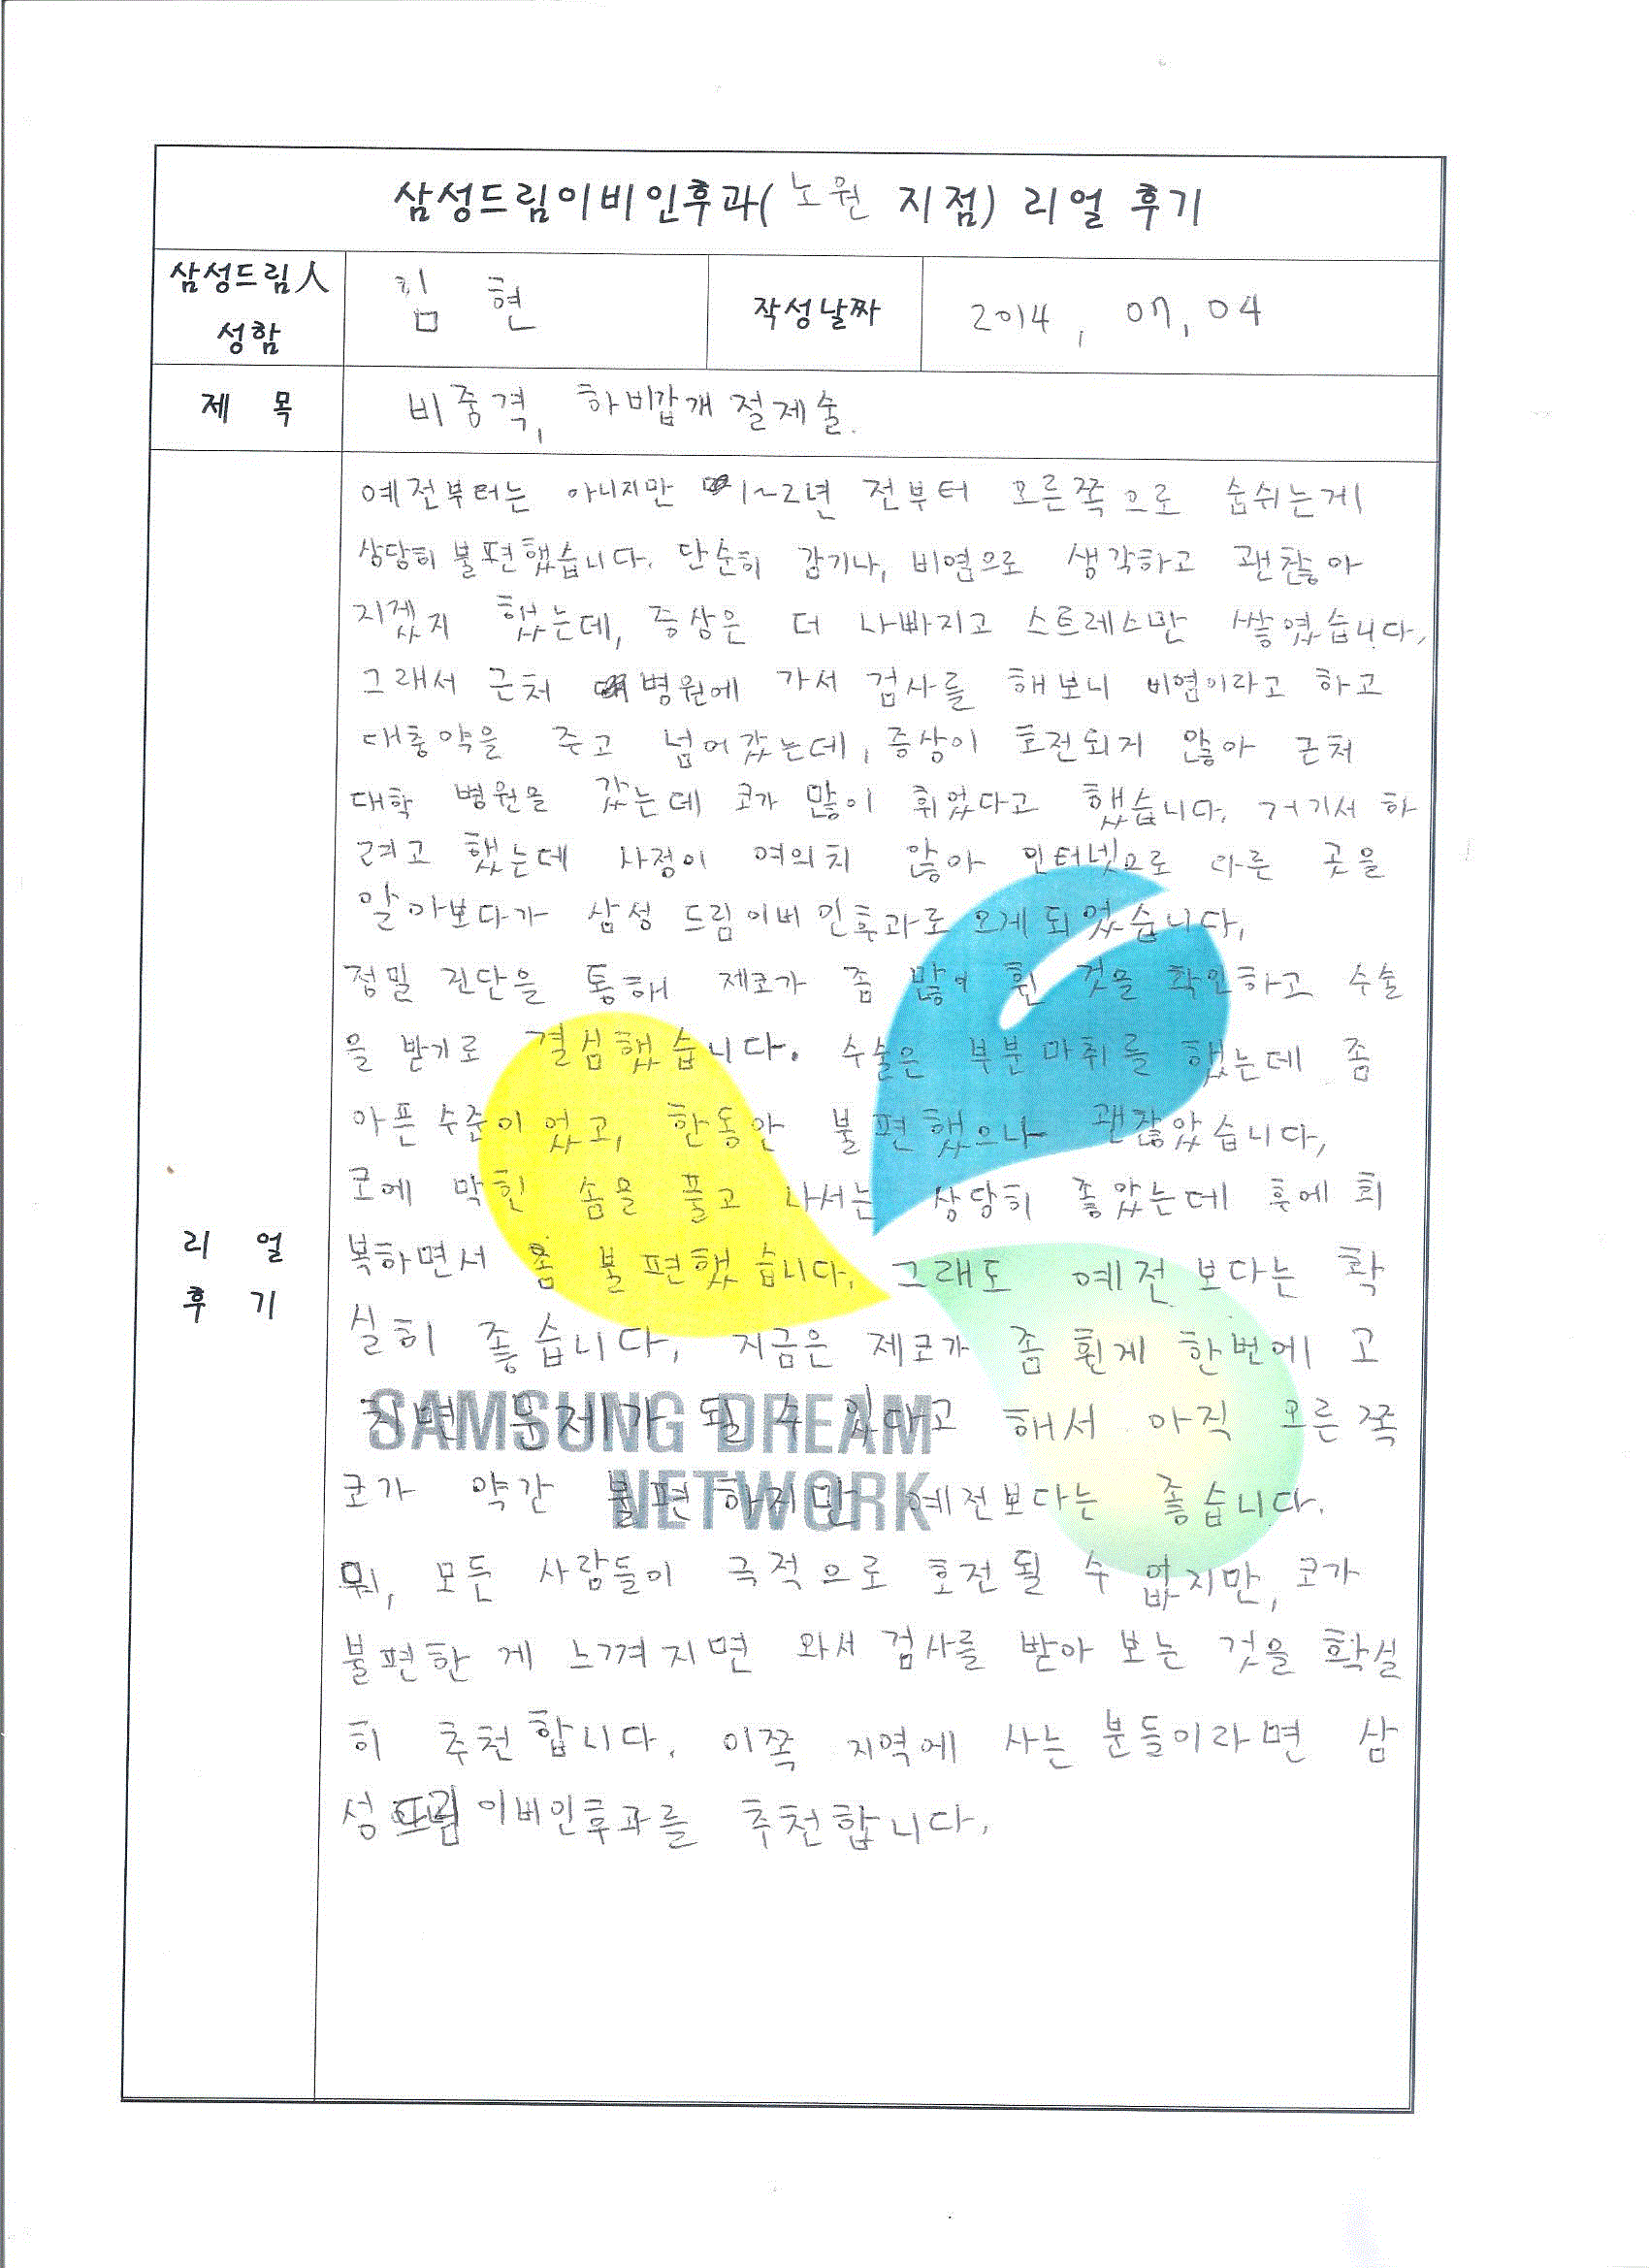 삼성드림이비인후과( 노원 지점) 리얼 후기
삼성드림人
성함
김 현
작성날짜
2014, 07, 04
제 목
비중격, 하비갑개 절제술.
리 얼
후 기
예전부터는 아니지만 1~2년 전부터 오른쪽으로 숨쉬는게
상당히 불편했습니다. 단순히 감기나, 비염으로 생각하고 괜찮아
지겠지 했는데, 증상은 더 나빠지고 스트레스만 쌓였습니다.
그래서 근처 병원에 가서 검사를 해보니 비염이라고 하고
대충약을 주고 넘어갔는데, 증상이 호전되지 않아 근처
대학 병원을 갔는데 코가 많이 휘었다고 했습니다. 거기서 하
려고 했는데 사정이 여의치 않아 인터넷으로 다른 곳을
알아보다가 삼성 드림이비인후과로 오게되었습니다.
정밀 진단을 통해 제코가 좀 많이 휜 것을 확인하고 수술
을 받기로 결심했습니다. 수술은 부분마취를 했는데 좀
아픈수준이었고, 한동안 불편했으나 괜찮았습니다,
코에 막힌 솜을 풀고 나서는 상당히 좋았는데 후에 회
복하면서 좀 불편했습니다. 그래도 예전보다는 확
실히 좋습니다. 지금은 제코가 좀 휜게 한번에 고
치면 문제가 될 수 있다고 해서 아직 오른쪽
코가 약간 불편하지만 예전보다는 좋습니다.
뭐, 모든 사람들이 극적으로 호전될 수 없지만, 코가
불편한 게 느껴지면 와서 검사를 받아 보는 것을 확실
히 추천합니다. 이쪽 지역에 사는 분들이라면 삼
성드림이비인후과를 추천합니다.
SAMSUNG DREAM
NETWORK